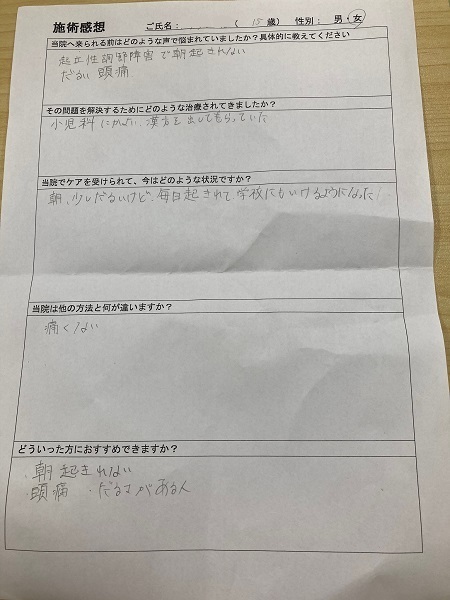 施術感想 ご氏名： ( 15 歳) 性別： 男・女
当院へ来られる前はどのような声で悩まれていましたか？具体的に教えてください
起立性調節障害で朝起きれない
だるい 頭痛
その問題を解決するためにどのような治療されてきましたか？
小児科にかよい、漢方を出してもらっていた
当院でケアを受けられて、今はどのような状況ですか？
朝、少しだるいけど、毎日起きれて、学校にもいけるようになった！
当院は他の方法と何が違いますか？
痛くない
どういった方におすすめできますか？
・朝起きれない
・頭痛 ・だるさがある人